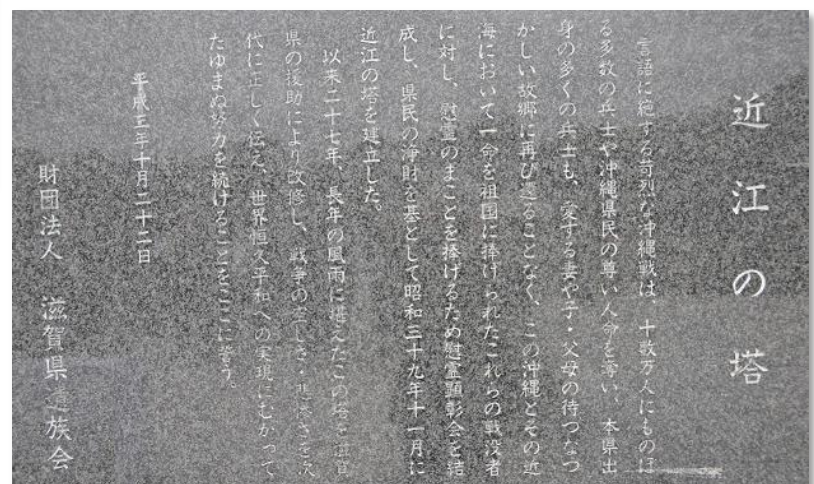 近江の塔
言語に絶する苛烈な沖縄戦は、十数万人にものぼ
る多数の兵士や沖縄県民の尊い人命を奪い、本県出
身の多くの兵士も、愛する妻や子・父母の待つなつ
かしい故郷に再び還ることなく、この沖縄とその近
海において一命を祖国に捧げられたこれらの戦没者
に対し、慰霊のまことを捧げるため慰霊顕彰会を結
成し、県民の浄財を基として昭和三十九年十一月に
近江の塔を建立した。
以来二十七年、長年の風雨に堪えたこの塔を滋賀
県の援助により改修し、戦争の空しさ・悲惨さを次
代に正しく伝え、世界恒久平和への実現にむかって
たゆまぬ努力を続けることをここに誓う。
平成三年十月二十二日
財団法人 滋賀県遺族会